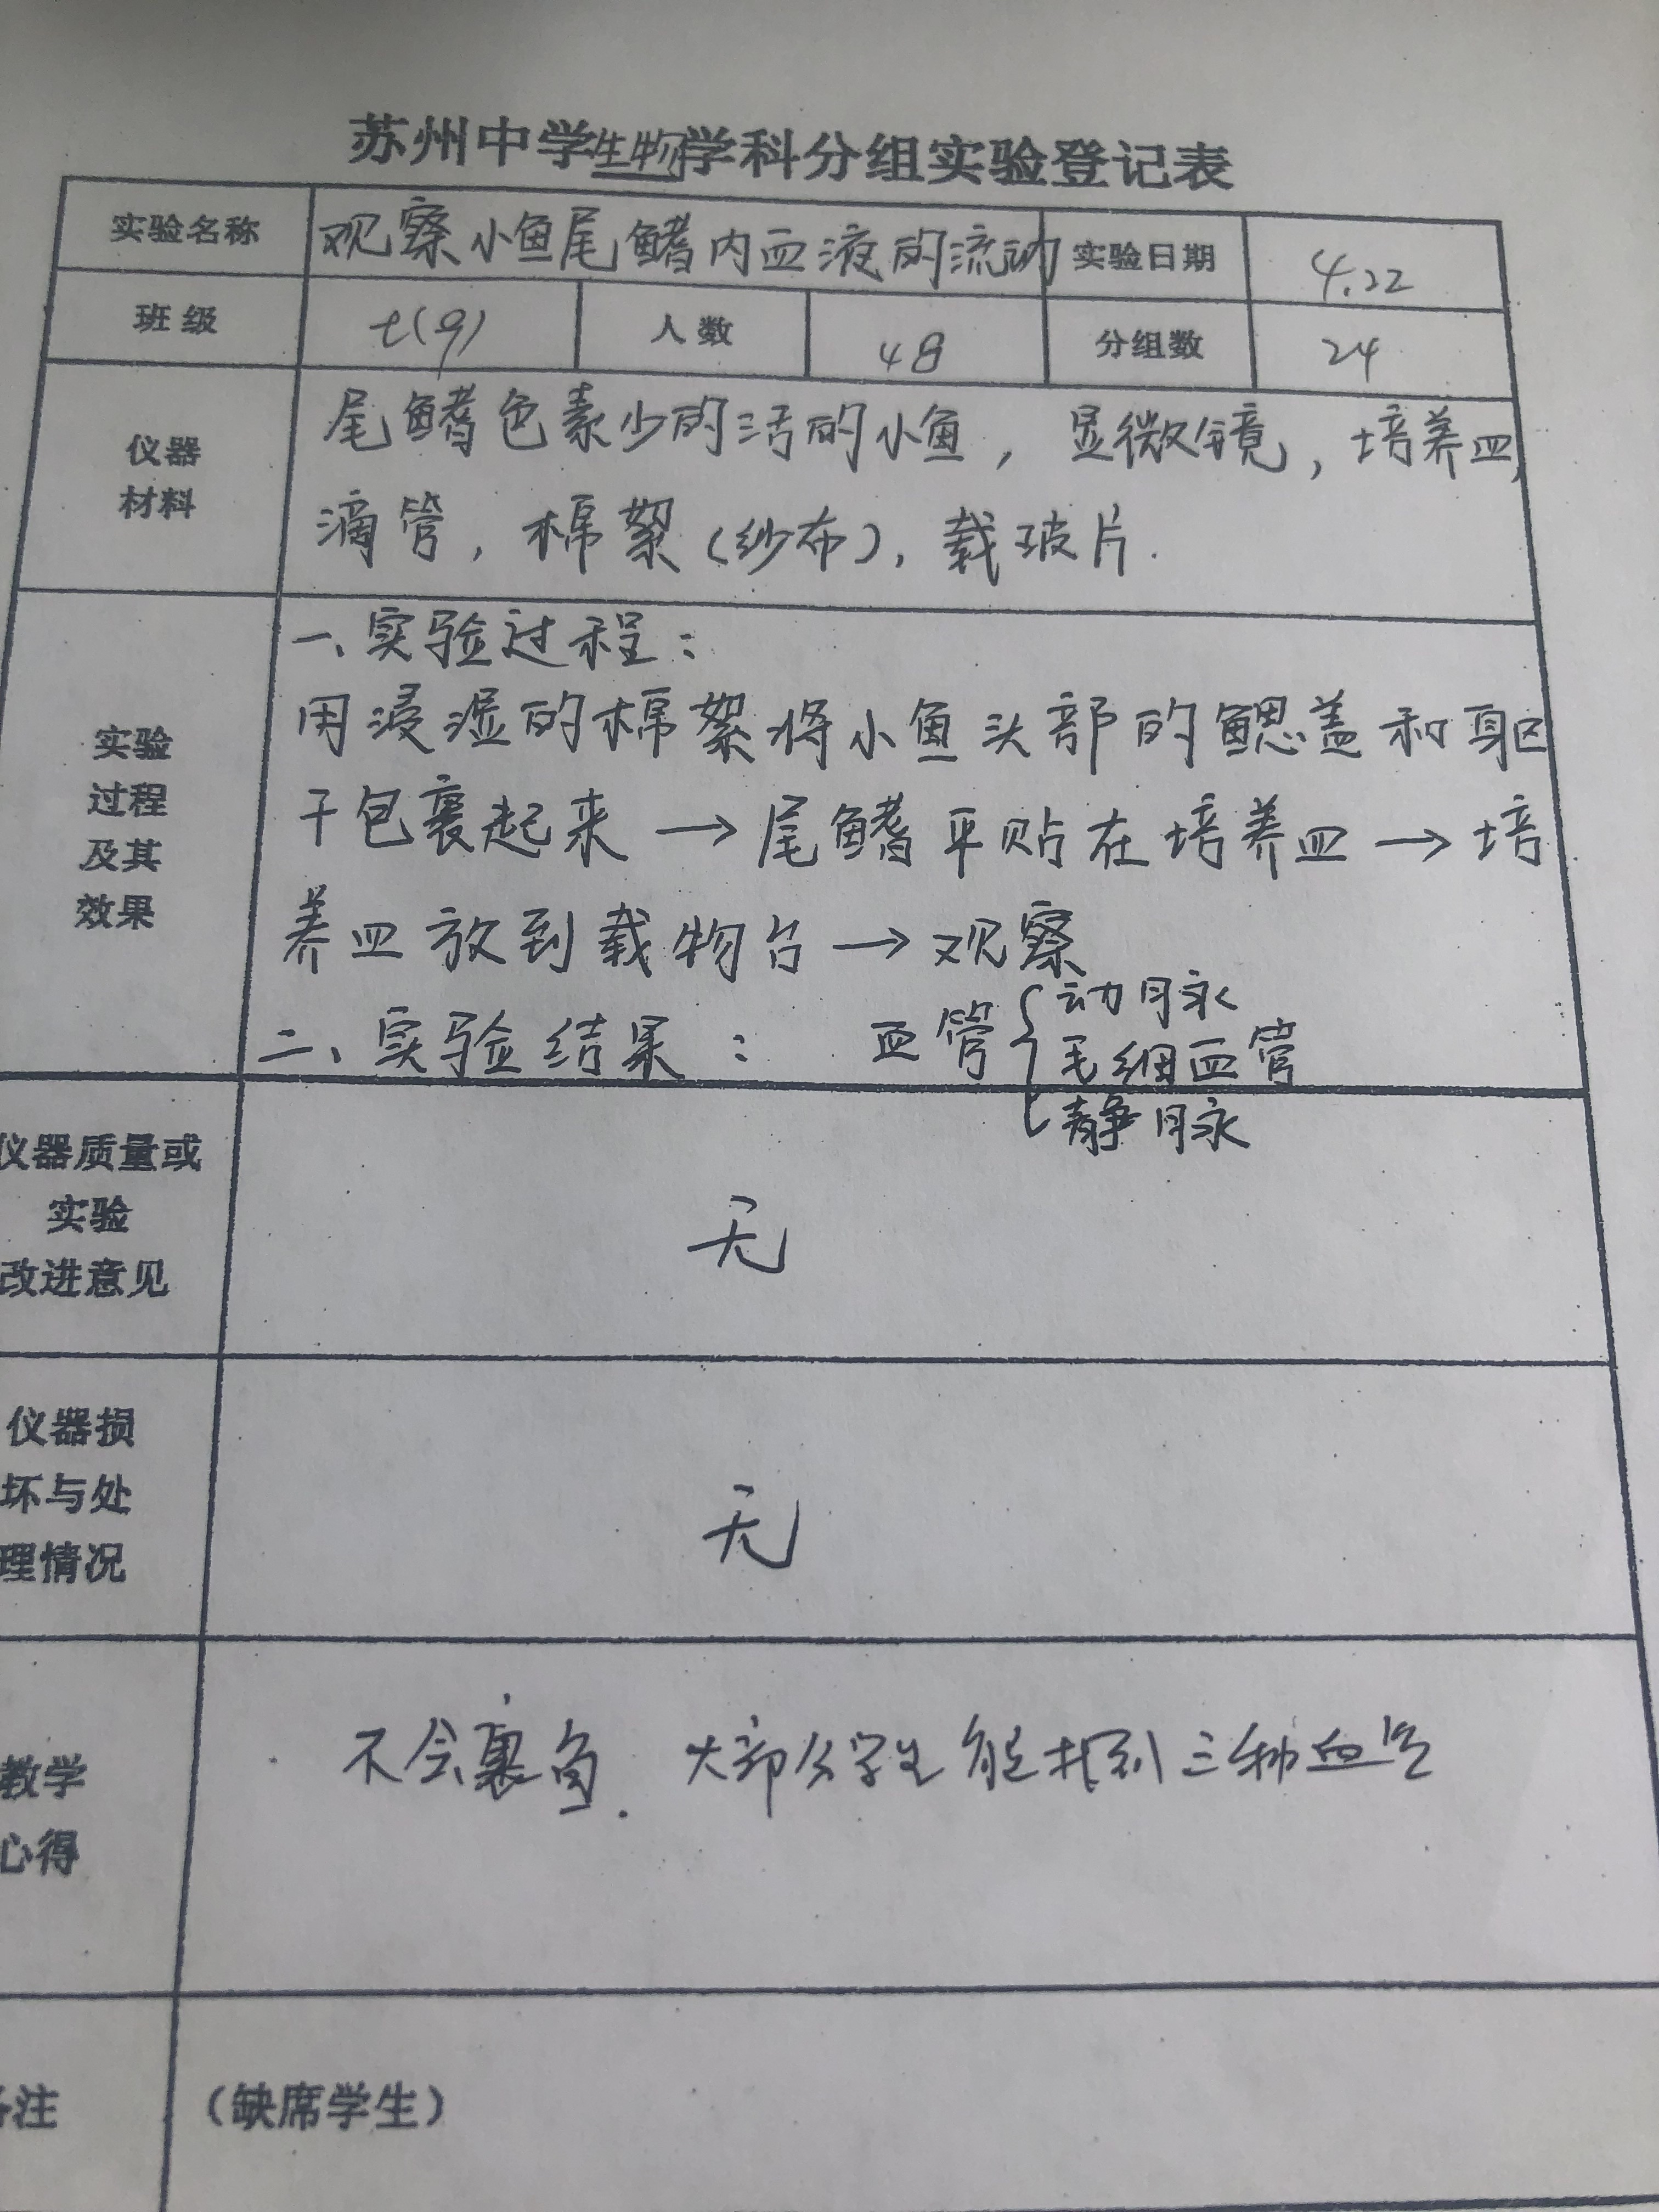 苏州中学生物学科分组实验登记表
实验名称 观察小鱼尾鳍内血液的流动 实验日期 4.22
班级 七(9) 人数 48 分组数 24
仪器
材料
尾鳍色素少的活的小鱼，显微镜，培养皿，
滴管，棉絮(纱布)，载玻片.
实验
过程
及其
效果
一、实验过程：
用浸湿的棉絮将小鱼头部的鳃盖和躯
干包裹起来→尾鳍平贴在培养皿→培
养皿放到载物台→观察
二、实验结果： 血管{动脉
毛细血管
静脉
仪器质量或
实验
改进意见
无
仪器损
坏与处
理情况
无
教学
心得
不会裹鱼. 大部分学生能找到三种血管
备注 （缺席学生）